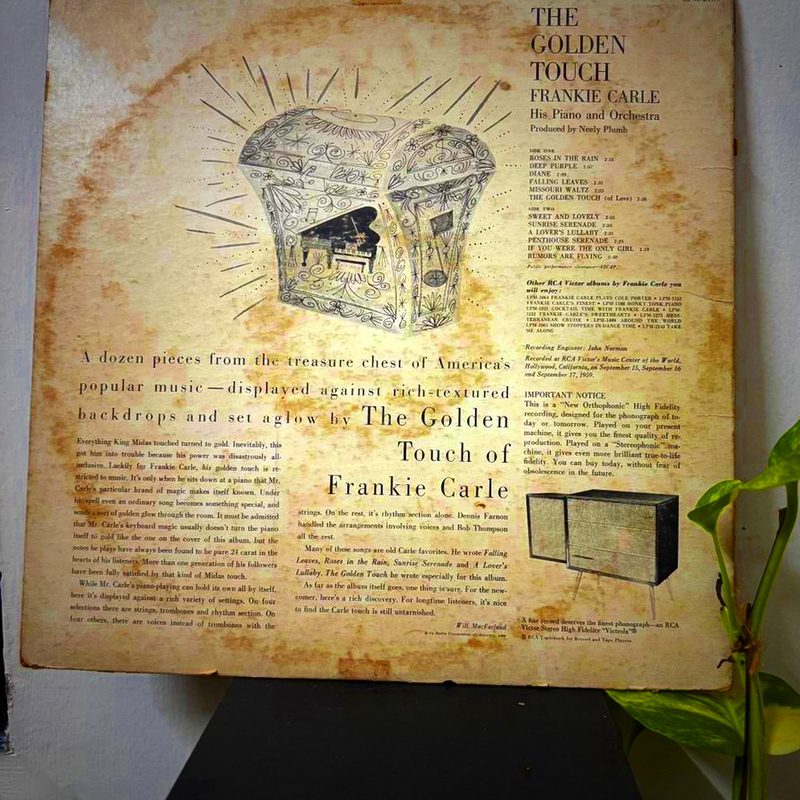 THE
GOLDEN
TOUCH
FRANKIE CARLE
His Piano and Orchestra
Produced by Neely Plumb
SIDE ONE
ROSES IN THE RAIN
DEEP PURPLE
DIANE
FALLING LEAVES
MISSOURI WALTZ
THE GOLDEN TOUCH (of Love)
SIDE TWO
SWEET AND LOVELY
SUNRISE SERENADE
A LOVER'S LULLABY
PENTHOUSE SERENADE
IF YOU WERE THE ONLY GIRL
RUMORS ARE FLYING
Public performance clearance—ASCAP
Other RCA Victor albums by Frankie Carle you
will enjoy:
FRANKIE CARLE PLAYS COLE PORTER •
FRANKIE CARLE'S FINEST • HONKY TONK PIANO
COCKTAIL TIME WITH FRANKIE CARLE • LPM-
FRANKIE CARLE'S SWEETHEARTS • MEDI-
TERRANEAN CRUISE • AROUND THE WORLD
SHOW STOPPERS IN DANCE TIME • TAKE
ME ALONG
Recording Engineer: John Norman
Recorded at RCA Victor's Music Center of the World,
Hollywood, California, on September 15, September 16
and September 17, 1959.
IMPORTANT NOTICE
This is a "New Orthophonic" High Fidelity
recording, designed for the phonograph of to-
day or tomorrow. Played on your present
machine, it gives you the finest quality of re-
production. Played on a "Stereophonic" ma-
chine, it gives even more brilliant true-to-life
fidelity. You can buy today, without fear of
obsolescence in the future.
A fine record deserves the finest phonograph—an RCA
Victor Stereo High Fidelity "Victrola"®
® RCA Trademark for Record and Tape Players
A dozen pieces from the treasure chest of America's
popular music—displayed against rich-textured
backdrops and set aglow by The Golden
Touch of
Frankie Carle
Everything King Midas touched turned to gold. Inevitably, this
got him into trouble because his power was disastrously all-
inclusive. Luckily for Frankie Carle, his golden touch is re-
stricted to music. It's only when he sits down at a piano that Mr.
Carle's particular brand of magic makes itself known. Under
his spell even an ordinary song becomes something special, and
sends a sort of golden glow through the room. It must be admitted
that Mr. Carle's keyboard magic usually doesn't turn the piano
itself to gold like the one on the cover of this album, but the
notes he plays have always been found to be pure 24 carat in the
hearts of his listeners. More than one generation of his followers
have been fully satisfied by that kind of Midas touch.
While Mr. Carle's piano-playing can hold its own all by itself,
here it's displayed against a rich variety of settings. On four
selections there are strings, trombones and rhythm section. On
four others, there are voices instead of trombones with the
strings. On the rest, it's rhythm section alone. Dennis Farnon
handled the arrangements involving voices and Bob Thompson
all the rest.
Many of these songs are old Carle favorites. He wrote Falling
Leaves, Roses in the Rain, Sunrise Serenade and A Lover's
Lullaby. The Golden Touch he wrote especially for this album.
As far as the album itself goes, one thing is sure. For the new-
comer, here's a rich discovery. For longtime listeners, it's nice
to find the Carle touch is still untarnished.
Will MacFarland